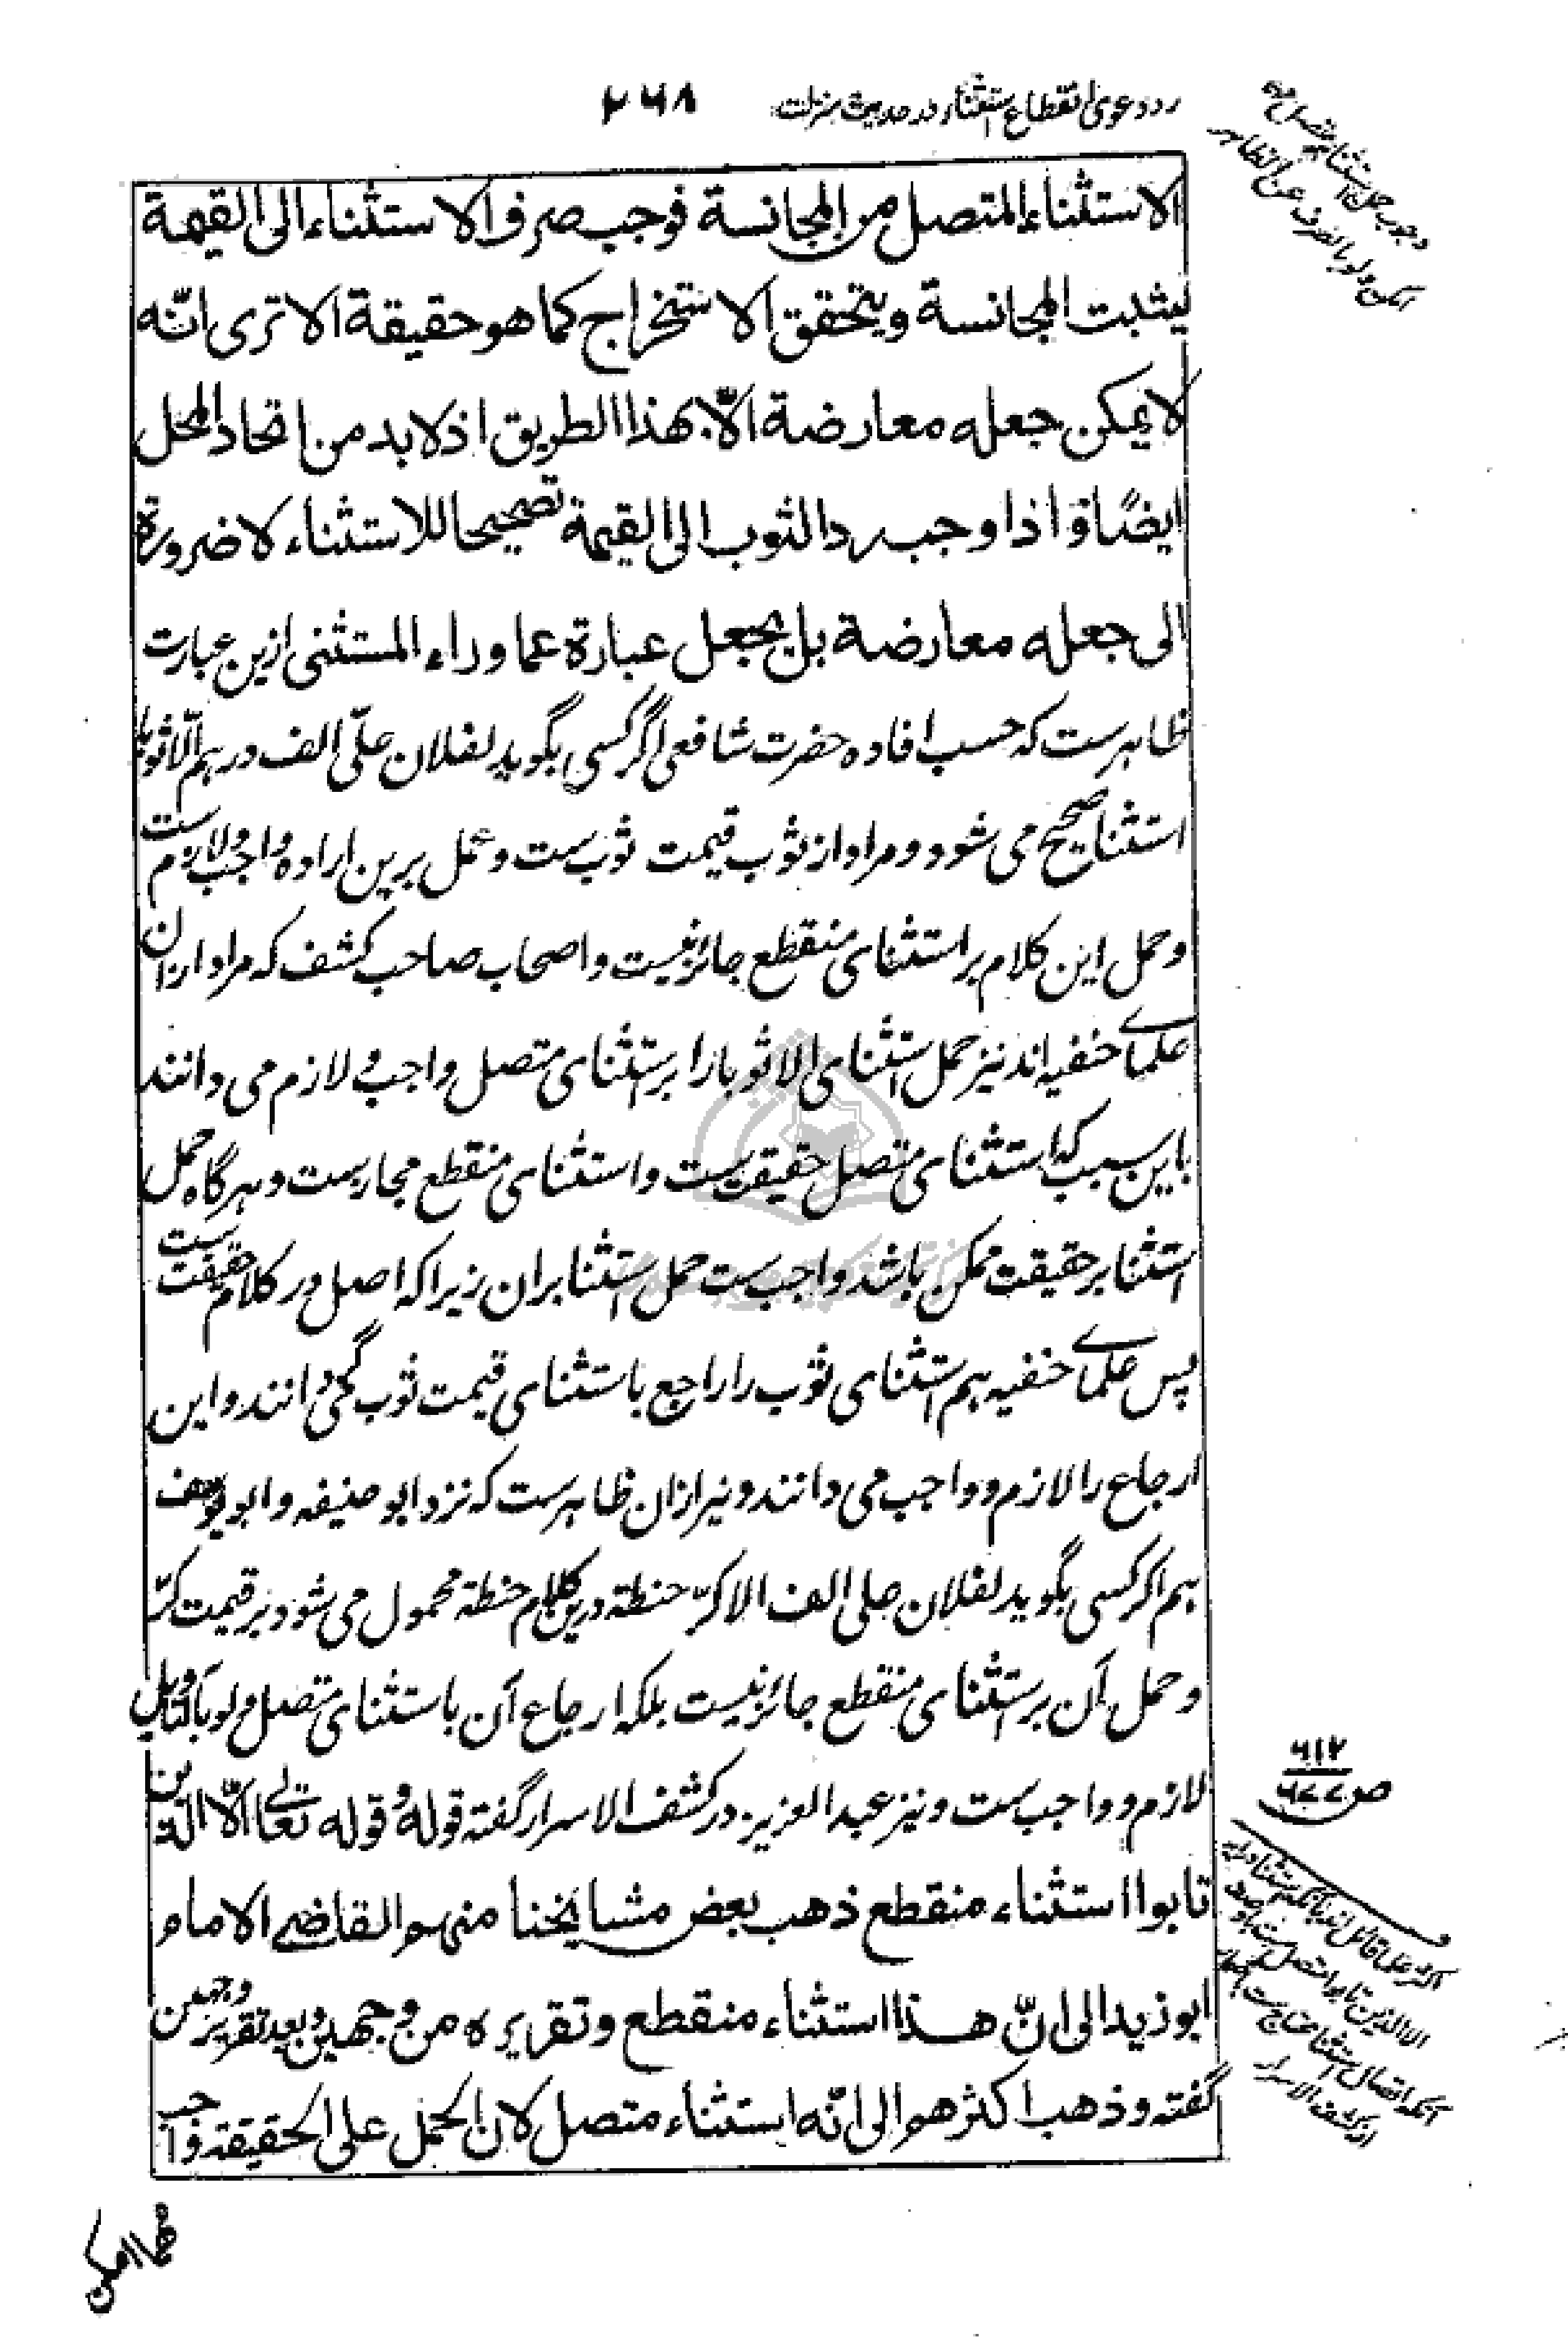 رد دعوی انقطاع استثناء در حدیث منزلت
۲۶۸
وجوب حمل استثنا بر متصل مهما
امکن و لو بالصرف عن الظاهر
الاستثناء المتصل من المجانسة فوجب صرف الاستثناء الی القیمة
لیثبت المجانسة ویتحقق الاستخراج کما هو حقیقة الا تری انّه
لا یمکن جعله معارضة الّا بهذا الطریق اذ لا بد من اتحاد المحل
ایضًا و اذا وجب رد الثوب الی القیمة تصحیحا للاستثناء لا ضرورة
الی جعله معارضة بل یجعل عبارة عما وراء المستثنی ازین عبارت
ظاهرست که حسب افاده حضرت شافعی اگر کسی بگوید لفلان علیّ الف درهم الّا ثوبا
استثنا صحیح می شود و مراد از ثوب قیمت ثوب ست و عمل برین اراده واجب و لازم ست
و حمل این کلام بر استثنای منقطع جائز نیست و اصحاب صاحب کشف که مراد ازان
علمای حنفیه اند نیز حمل استثنای الا ثوبا را بر استثنای متصل واجب و لازم می دانند
باین سبب که استثنای متصل حقیقت ست و استثنای منقطع مجازست و هرگاه حمل
استثنا بر حقیقت ممکن باشد واجب ست حمل استثنا بران زیرا که اصل در کلام حقیقت ست
پس علمای حنفیه هم استثنای ثوب را راجع باستثنای قیمت ثوب می گردانند و این
ارجاع را لازم و واجب می دانند و نیز ازان ظاهرست که نزد ابو حنیفه و ابو یوسف
هم اگر کسی بگوید لفلان علی الف الا کرّ حنطة درین کلام حنطة محمول می شود بر قیمت کرّ
و حمل آن بر استثنای منقطع جائز نیست بلکه ارجاع آن باستثنای متصل و لو بالتاویل
لازم و واجب ست و نیز عبد العزیز در کشف الاسرار گفته قوله و قوله تعالی الّا الذین
تابوا استثناء منقطع ذهب بعض مشایخنا منهم القاضی الامام
ابو زید الی انّ هذا استثناء منقطع و تقریره من وجهین و بعد تقریر وجهین
گفته و ذهب اکثرهم الی انّه استثناء متصل لان الحمل علی الحقیقة واجب
ص ۶۷۷
۶۱۲
اکثر علما قائل اند بآنکه استثنا در آیه
الا الذین تابوا متصل ست
از کشف الاسرار
مهما امکن